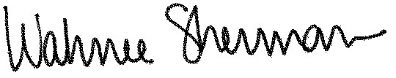 Wahnee Sherman